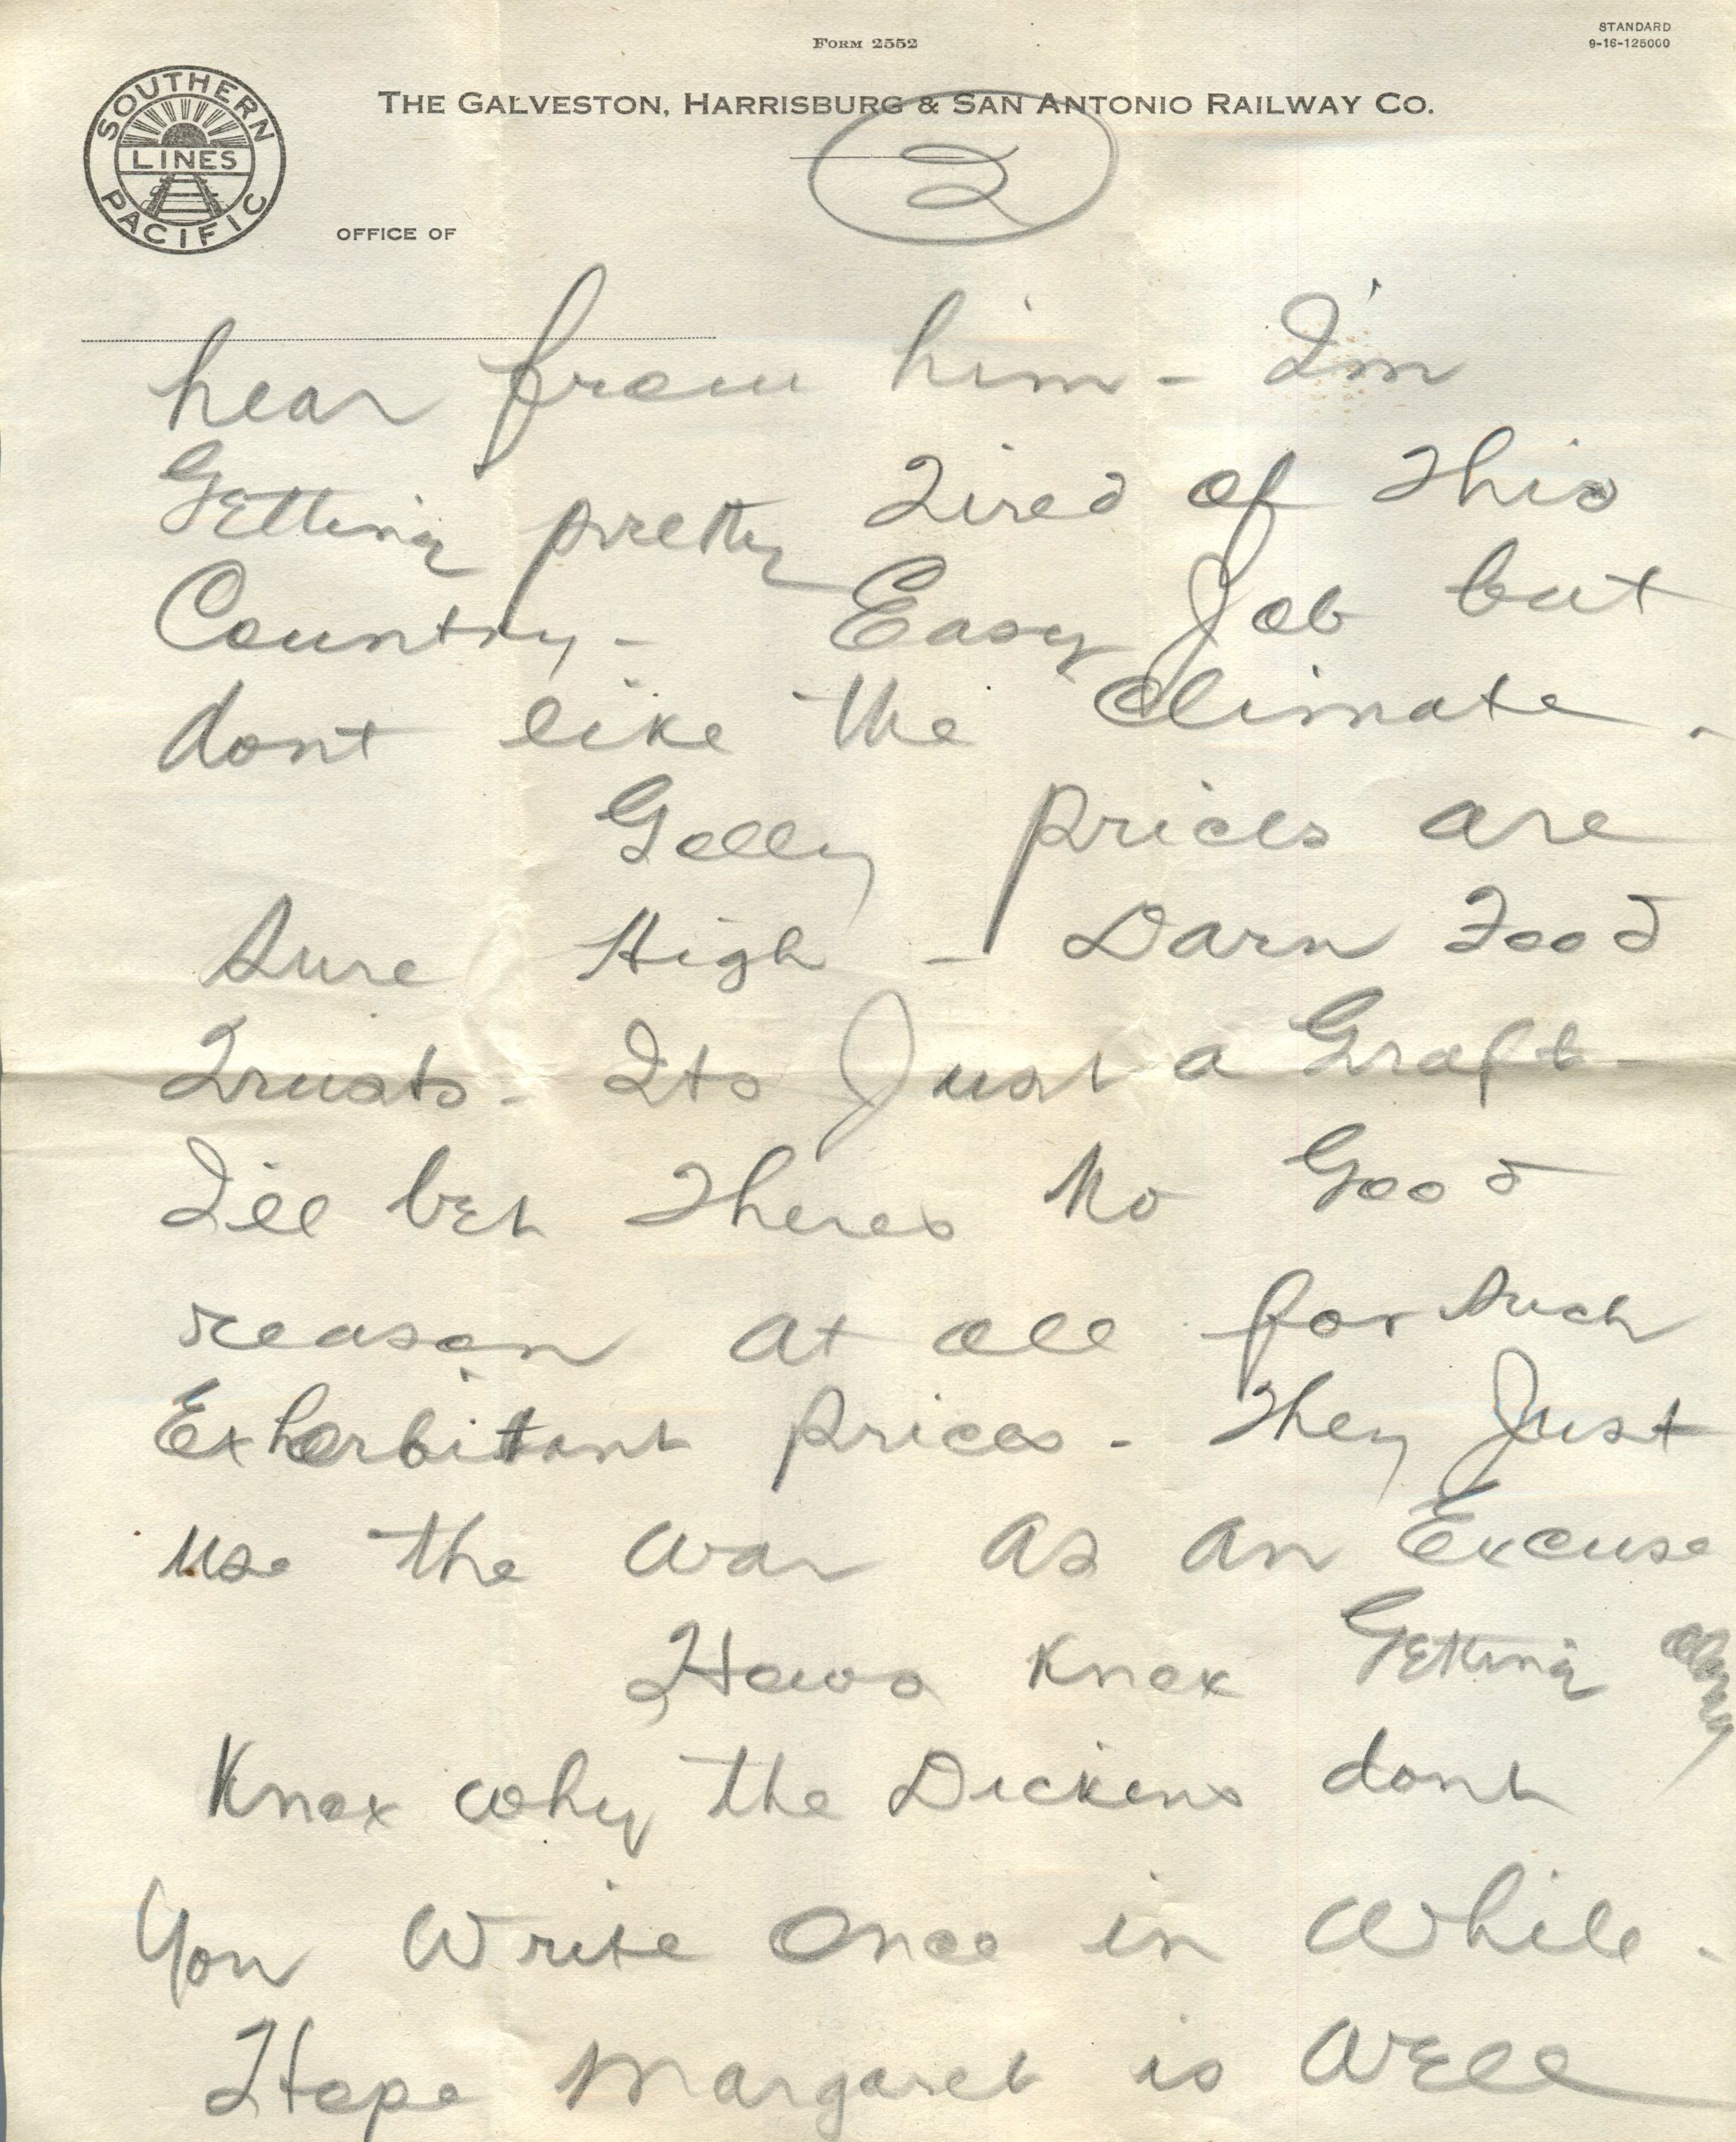 FORM 2552
STANDARD
9-16-125000
THE GALVESTON, HARRISBURG & SAN ANTONIO RAILWAY CO.
SOUTHERN
LINES
PACIFIC
2
OFFICE OF
hear from him - I'm
Getting pretty Tired of This
Country - Easy Job but
dont like the Climate -
Golly prices are
Sure High - Darn Food
Trusts - Its Just a Graft -
I'll bet Theres No Good
reason at all for Such
Exhorbitant prices - They Just
use the War as an Excuse
Hows Knox Getting
Knox why the Dickens dont
You Write Once in While -
Hope Margaret is Well